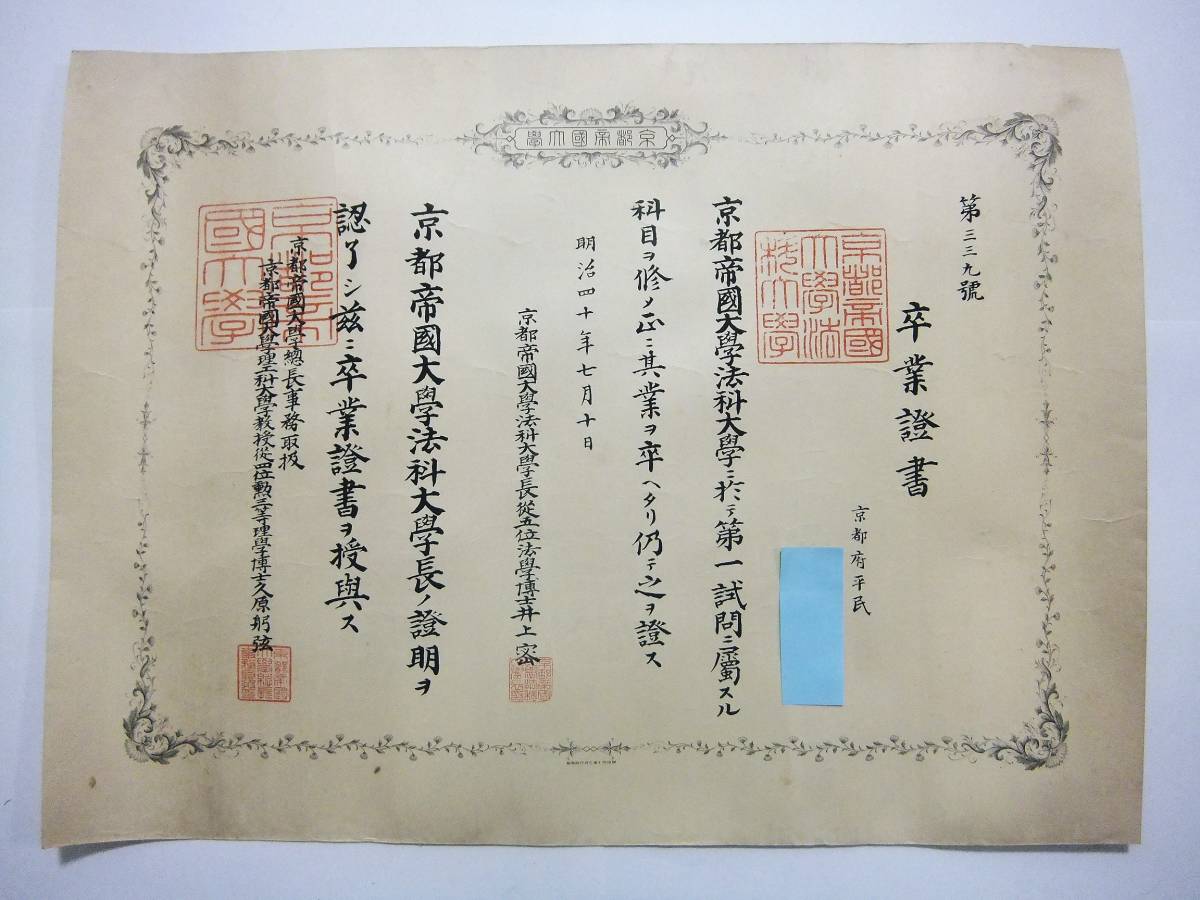 京都帝國大學
第三三九號
卒業證書
京都府平民
京都帝國大學法科大學
京都帝國大學法科大學ニ於テ第一試問ニ屬スル
科目ヲ修メ正ニ其業ヲ卒ヘタリ仍テ之ヲ證ス
明治四十年七月十日
京都帝國大學法科大學長從五位法學博士井上密
京都帝國大學法科大學長ノ證明ヲ
認了シ茲ニ卒業證書ヲ授與ス
京都帝國大學
京都帝國大學總長事務取扱
京都帝國大學理工科大學教授從四位勲三等理學博士久原躬弦